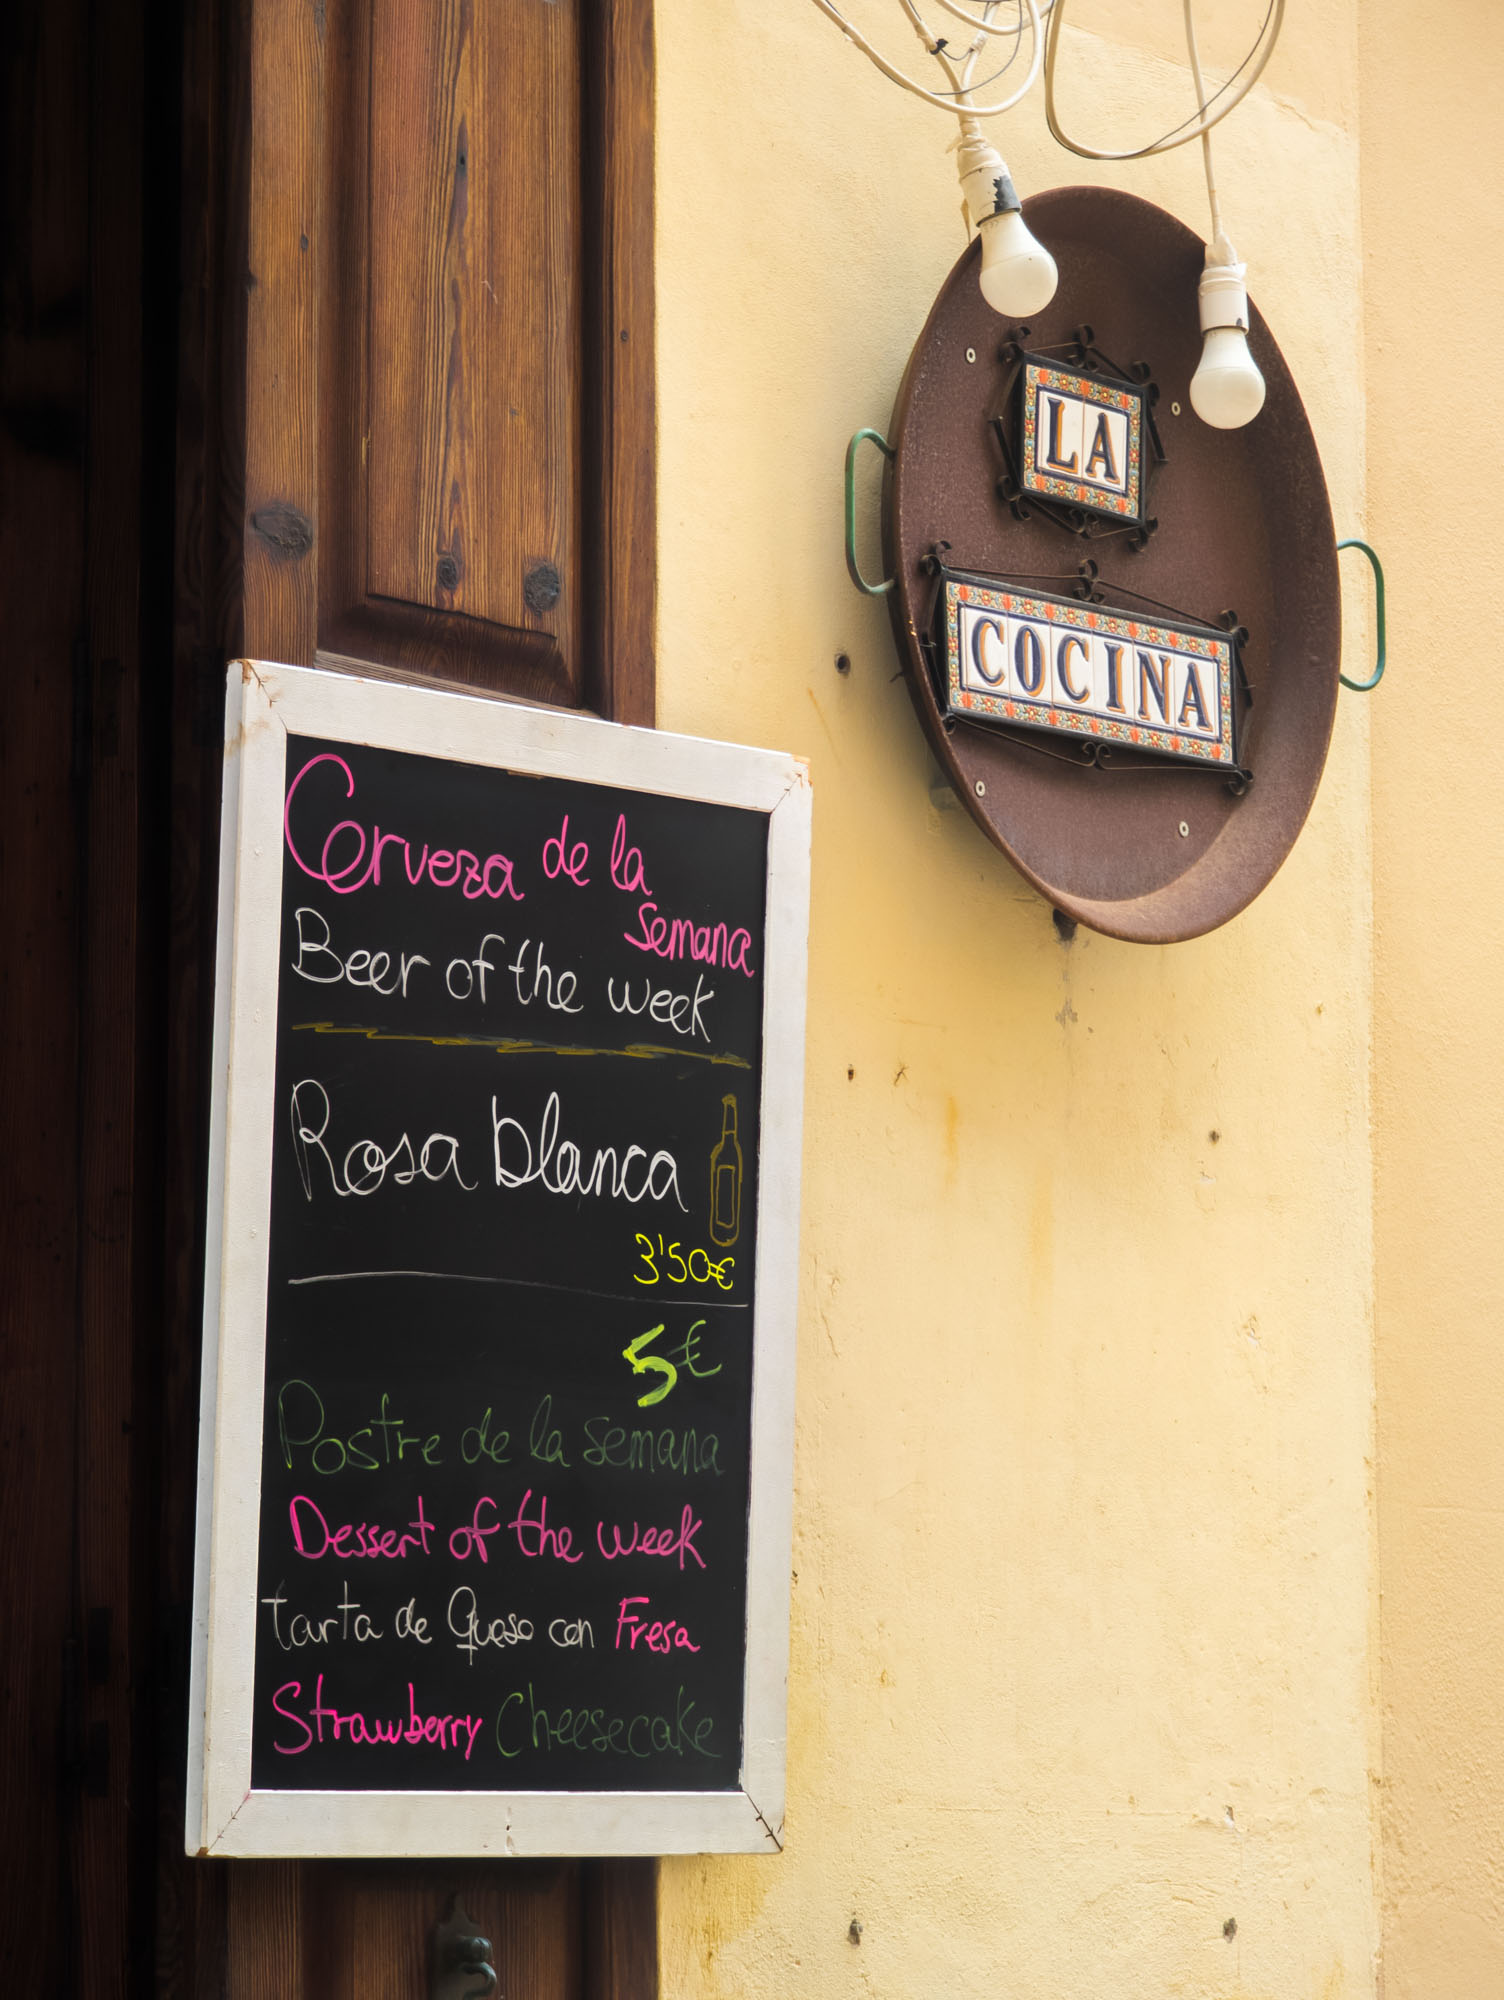 LA
COCINA
Cerveza de la
semana
Beer of the week
Rosa blanca
3'50€
5€
Postre de la semana
Dessert of the week
tarta de Queso con Fresa
Strawberry Cheesecake